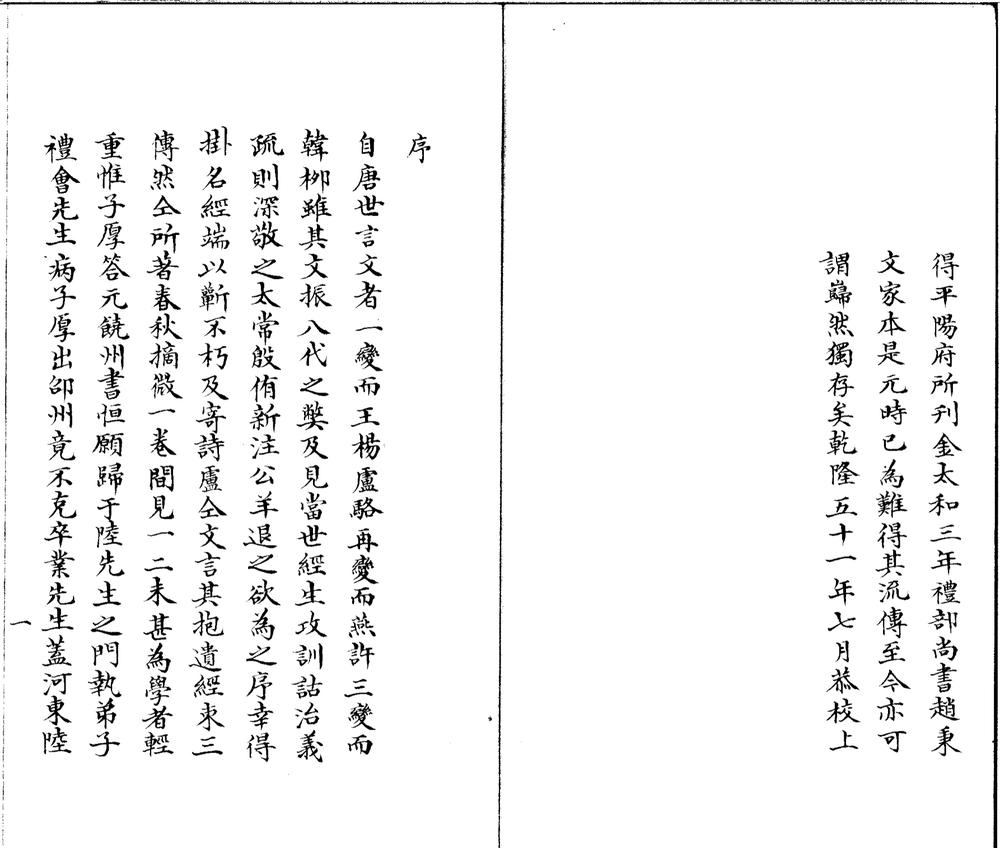 得平陽府所刊金太和三年禮部尚書趙秉
文家本是元時已為難得其流傳至今亦可
謂巋然獨存矣乾隆五十一年七月恭校上
序
自唐世言文者一變而王楊盧駱再變而燕許三變而
韓栁雖其文振八代之獘及見當世經生攻訓詁治義
疏則深敬之太常殷侑新注公羊退之欲為之序幸得
掛名經端以蘄不朽及寄詩盧仝文言其抱遺經束三
傳然仝所著春秋摘微一巻間見一二未甚為學者輕
重惟子厚答元饒州書恒願歸于陸先生之門執弟子
禮會先生病子厚出邵州竟不克卒業先生蓋河東陸
一